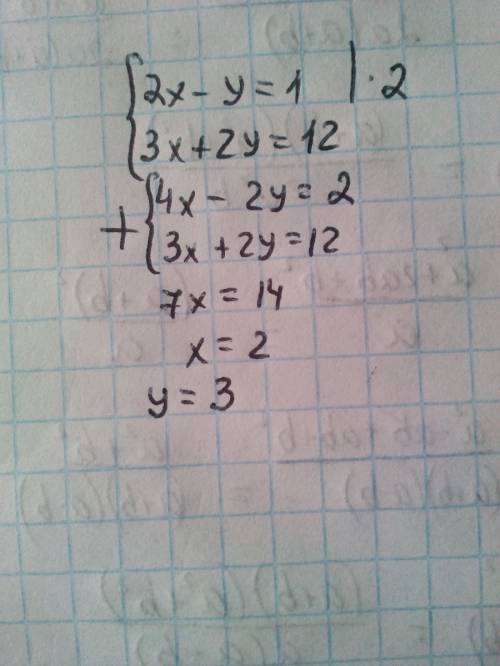 {2x - y = 1 | · 2
{3x + 2y = 12
+ {4x - 2y = 2
{3x + 2y = 12
7x = 14
x = 2
y = 3